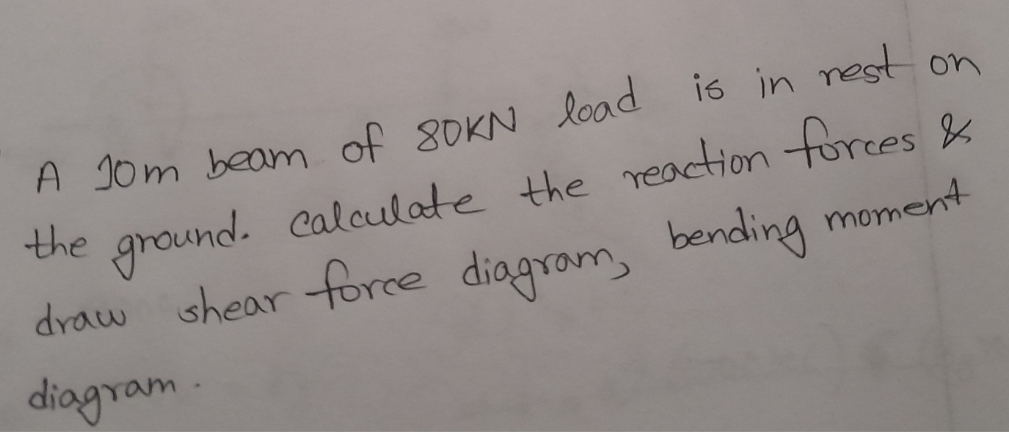 A 10m beam of 80KN load is in rest on
the ground. Calculate the reaction forces &
draw shear force diagram, bending moment
diagram.